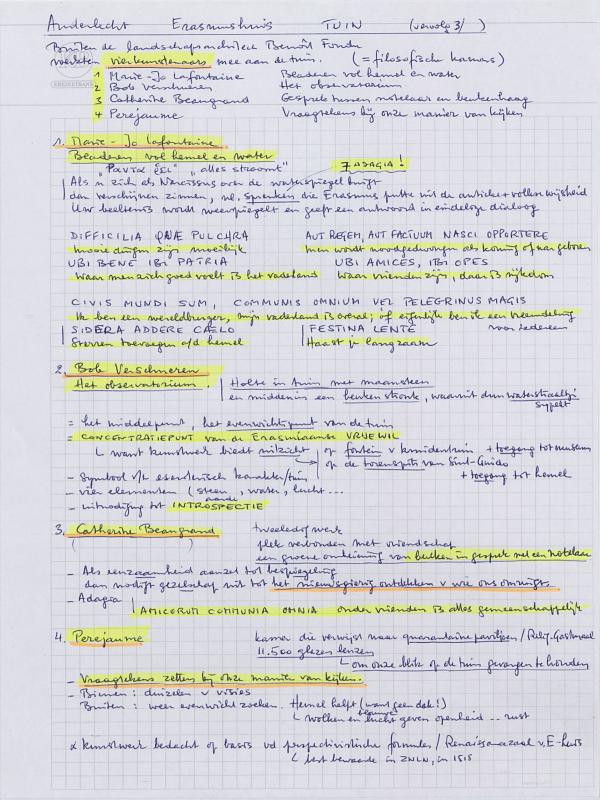 Anderlecht Erasmushuis TUIN (vervolg 3/ )
Buiten de landschapsarchitect Benoît Fondu
werkten vier kunstenaars mee aan de tuin. (= filosofische kamers)
1 Marie-Jo Lafontaine Bladeren vol hemel en water
2 Bob Verschueren Het observatorium
3 Catherine Beaugrand Gesprek tussen notelaar en beukenhaag
4 Perejaume Vraagtekens bij onze manier van kijken
1. Marie-Jo Lafontaine
Bladeren vol hemel en water
"alles stroomt" 7 ADAGIA!
Als u zich als Narcissus over de waterspiegel buigt
dan verschijnen zinnen, nl. spreuken die Erasmus putte uit de antieke + volkse wijsheid
Uw beeltenis wordt weerspiegeld en geeft een antwoord in eindeloze dialoog
DIFFICILIA QUAE PULCHRA AUT REGEM, AUT FACTUUM NASCI OPPORTERE
mooie dingen zijn moeilijk men wordt noodgedwongen als koning of nar geboren
UBI BENE IBI PATRIA UBI AMICES, IBI OPES
Waar men zich goed voelt is het vaderland Waar vrienden zijn, daar is rijkdom
CIVIS MUNDI SUM, COMMUNIS OMNIUM VEL PELEGRINUS MAGIS
Ik ben een wereldburger, mijn vaderland is overal; of eigenlijk ben ik een vreemdeling
voor iedereen
SIDERA ADDERE CAELO FESTINA LENTE
Sterren toevoegen a/d hemel Haast je langzaam
2. Bob Verschueren
Het observatorium. Holte in tuin met maansteen
en middenin een beukenstronk, waaruit dun waterstraaltje
sijpelt
= het middelpunt, het evenwichtspunt van de tuin
= CONCENTRATIEPUNT van de Erasmiaanse VRIJE WIL
want kunstwerk biedt uitzicht op fontein v kruidentuin + toegang tot museum
op de torenspits van Sint-Guido + toegang tot hemel
- Symbool v/h esoterisch karakter/tuin
- vier elementen (steen, water, lucht ...
aarde
- uitnodiging tot INTROSPECTIE
3. Catherine Beaugrand tweeledig werk
plek verbonden met vriendschap
een groene omheining van beuken in gesprek met een notelaar
- Als eenzaamheid aanzet tot bespiegeling
dan nodigt gezelschap uit tot het nieuwsgierig ontdekken v wie ons omringt.
- Adagia
AMICORUM COMMUNIA OMNIA onder vrienden is alles gemeenschappelijk
4. Perejaume kamer die verwijst naar quarantaine paviljoen / Relig. Gasthuis
11.500 glazen lenzen
om onze blik op de tuin gevangen te houden
- Vraagtekens zetten bij onze manier van kijken.
- Binnen: duizelen v visies
Buiten: weer evenwicht zoeken. Hemel helpt (want geen dak!)
wolken en lucht geven openheid .. rust
kunstwerk bedacht op basis vd perspectivistische formules / Renaissancezaal v. E-huis